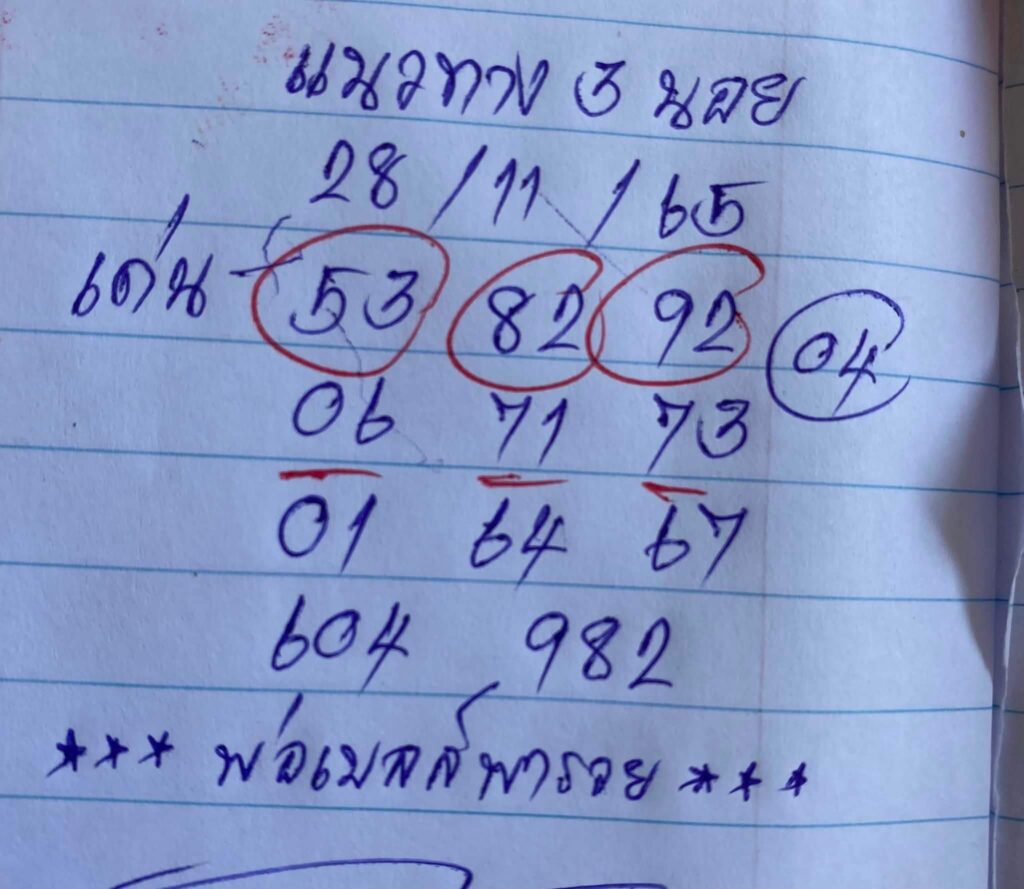 แนวทาง 3 นอย
28/11/65
เด่น - 53 82 92 04
06 71 73
01 64 67
604 982
*** พ่อเมลล์พารวย ***